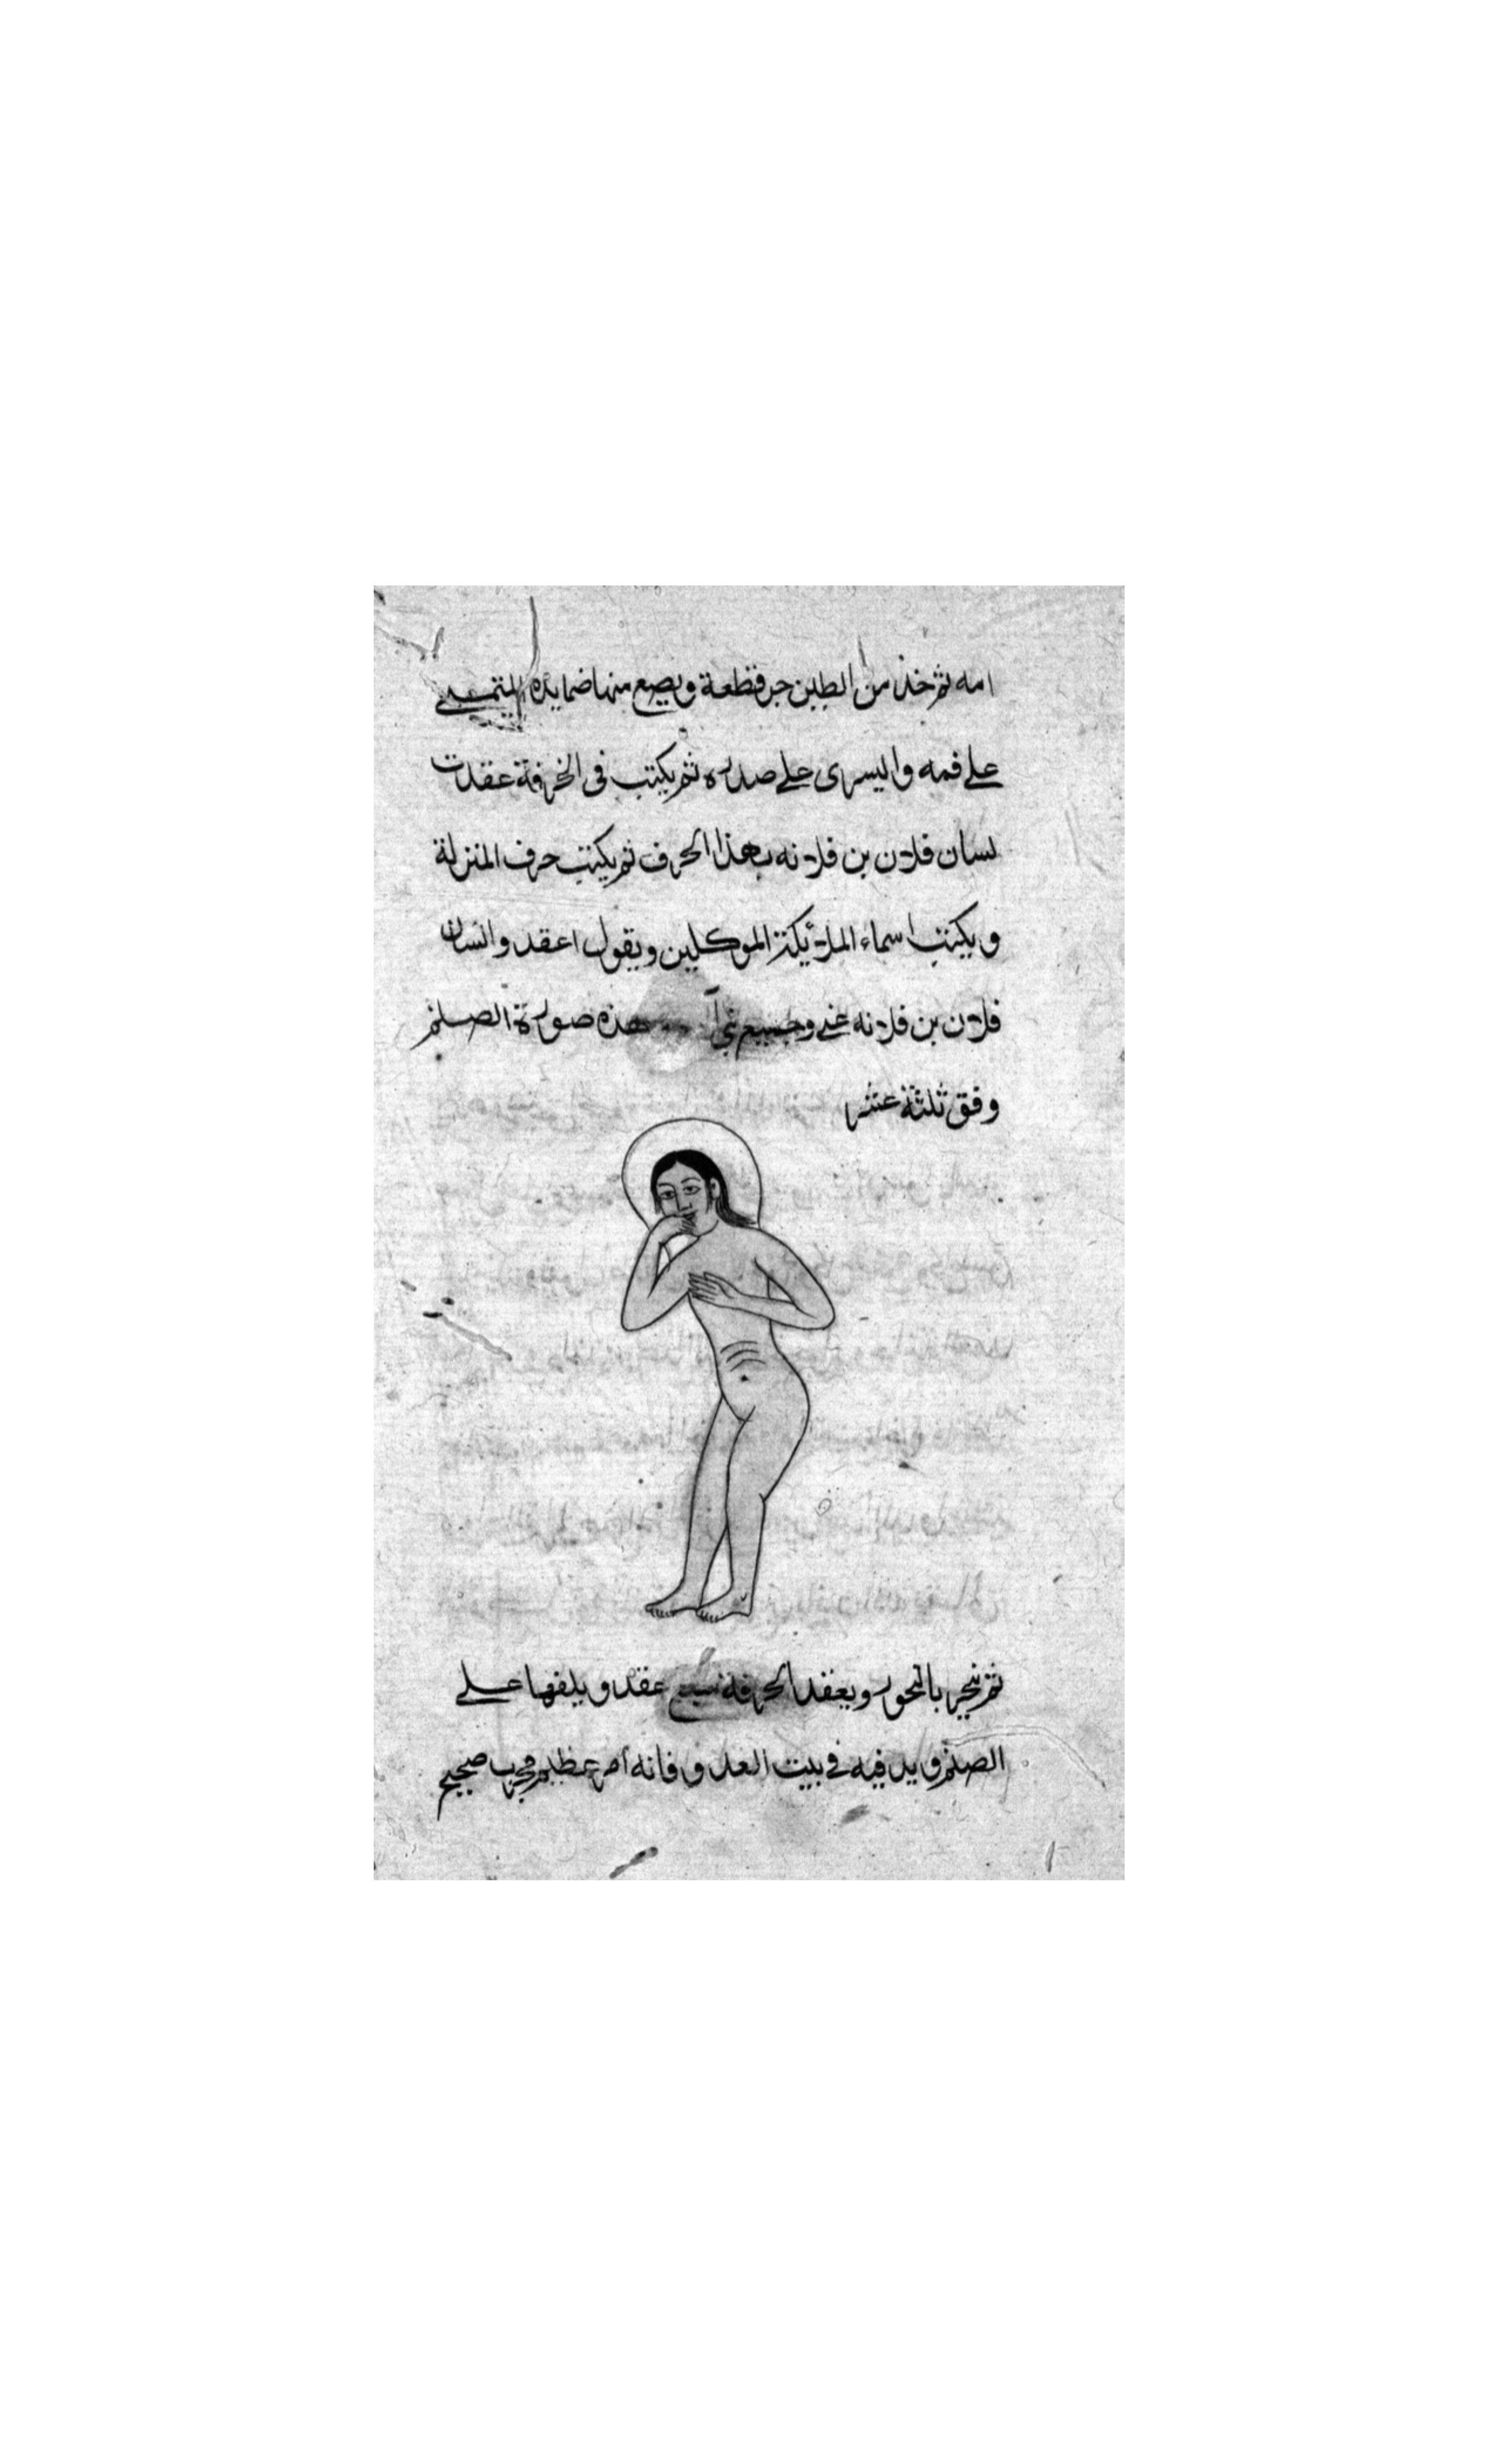 امه ثم خذ من الطين جر قطعة ويصع منها ضما يده اليمنى
على فمه واليسرى على صدره ثم يكتب فى الخرقة عقدت
لسان فلان بن فلانه بهذا الحرف ثم يكتب حرف المنزلة
ويكتب اسماء الملائكة الموكلين ويقول اعقد والسان
فلان بن فلانه عني وجميع هذه صورة الصلنم
وفق ثلثة عشر
ثم تبخر بالبخور ويعقد الخرقة سبع عقد ويلفها على
الصلنم ويدفيه في بيت العدو فانه امر عظيم مجرب صحيح